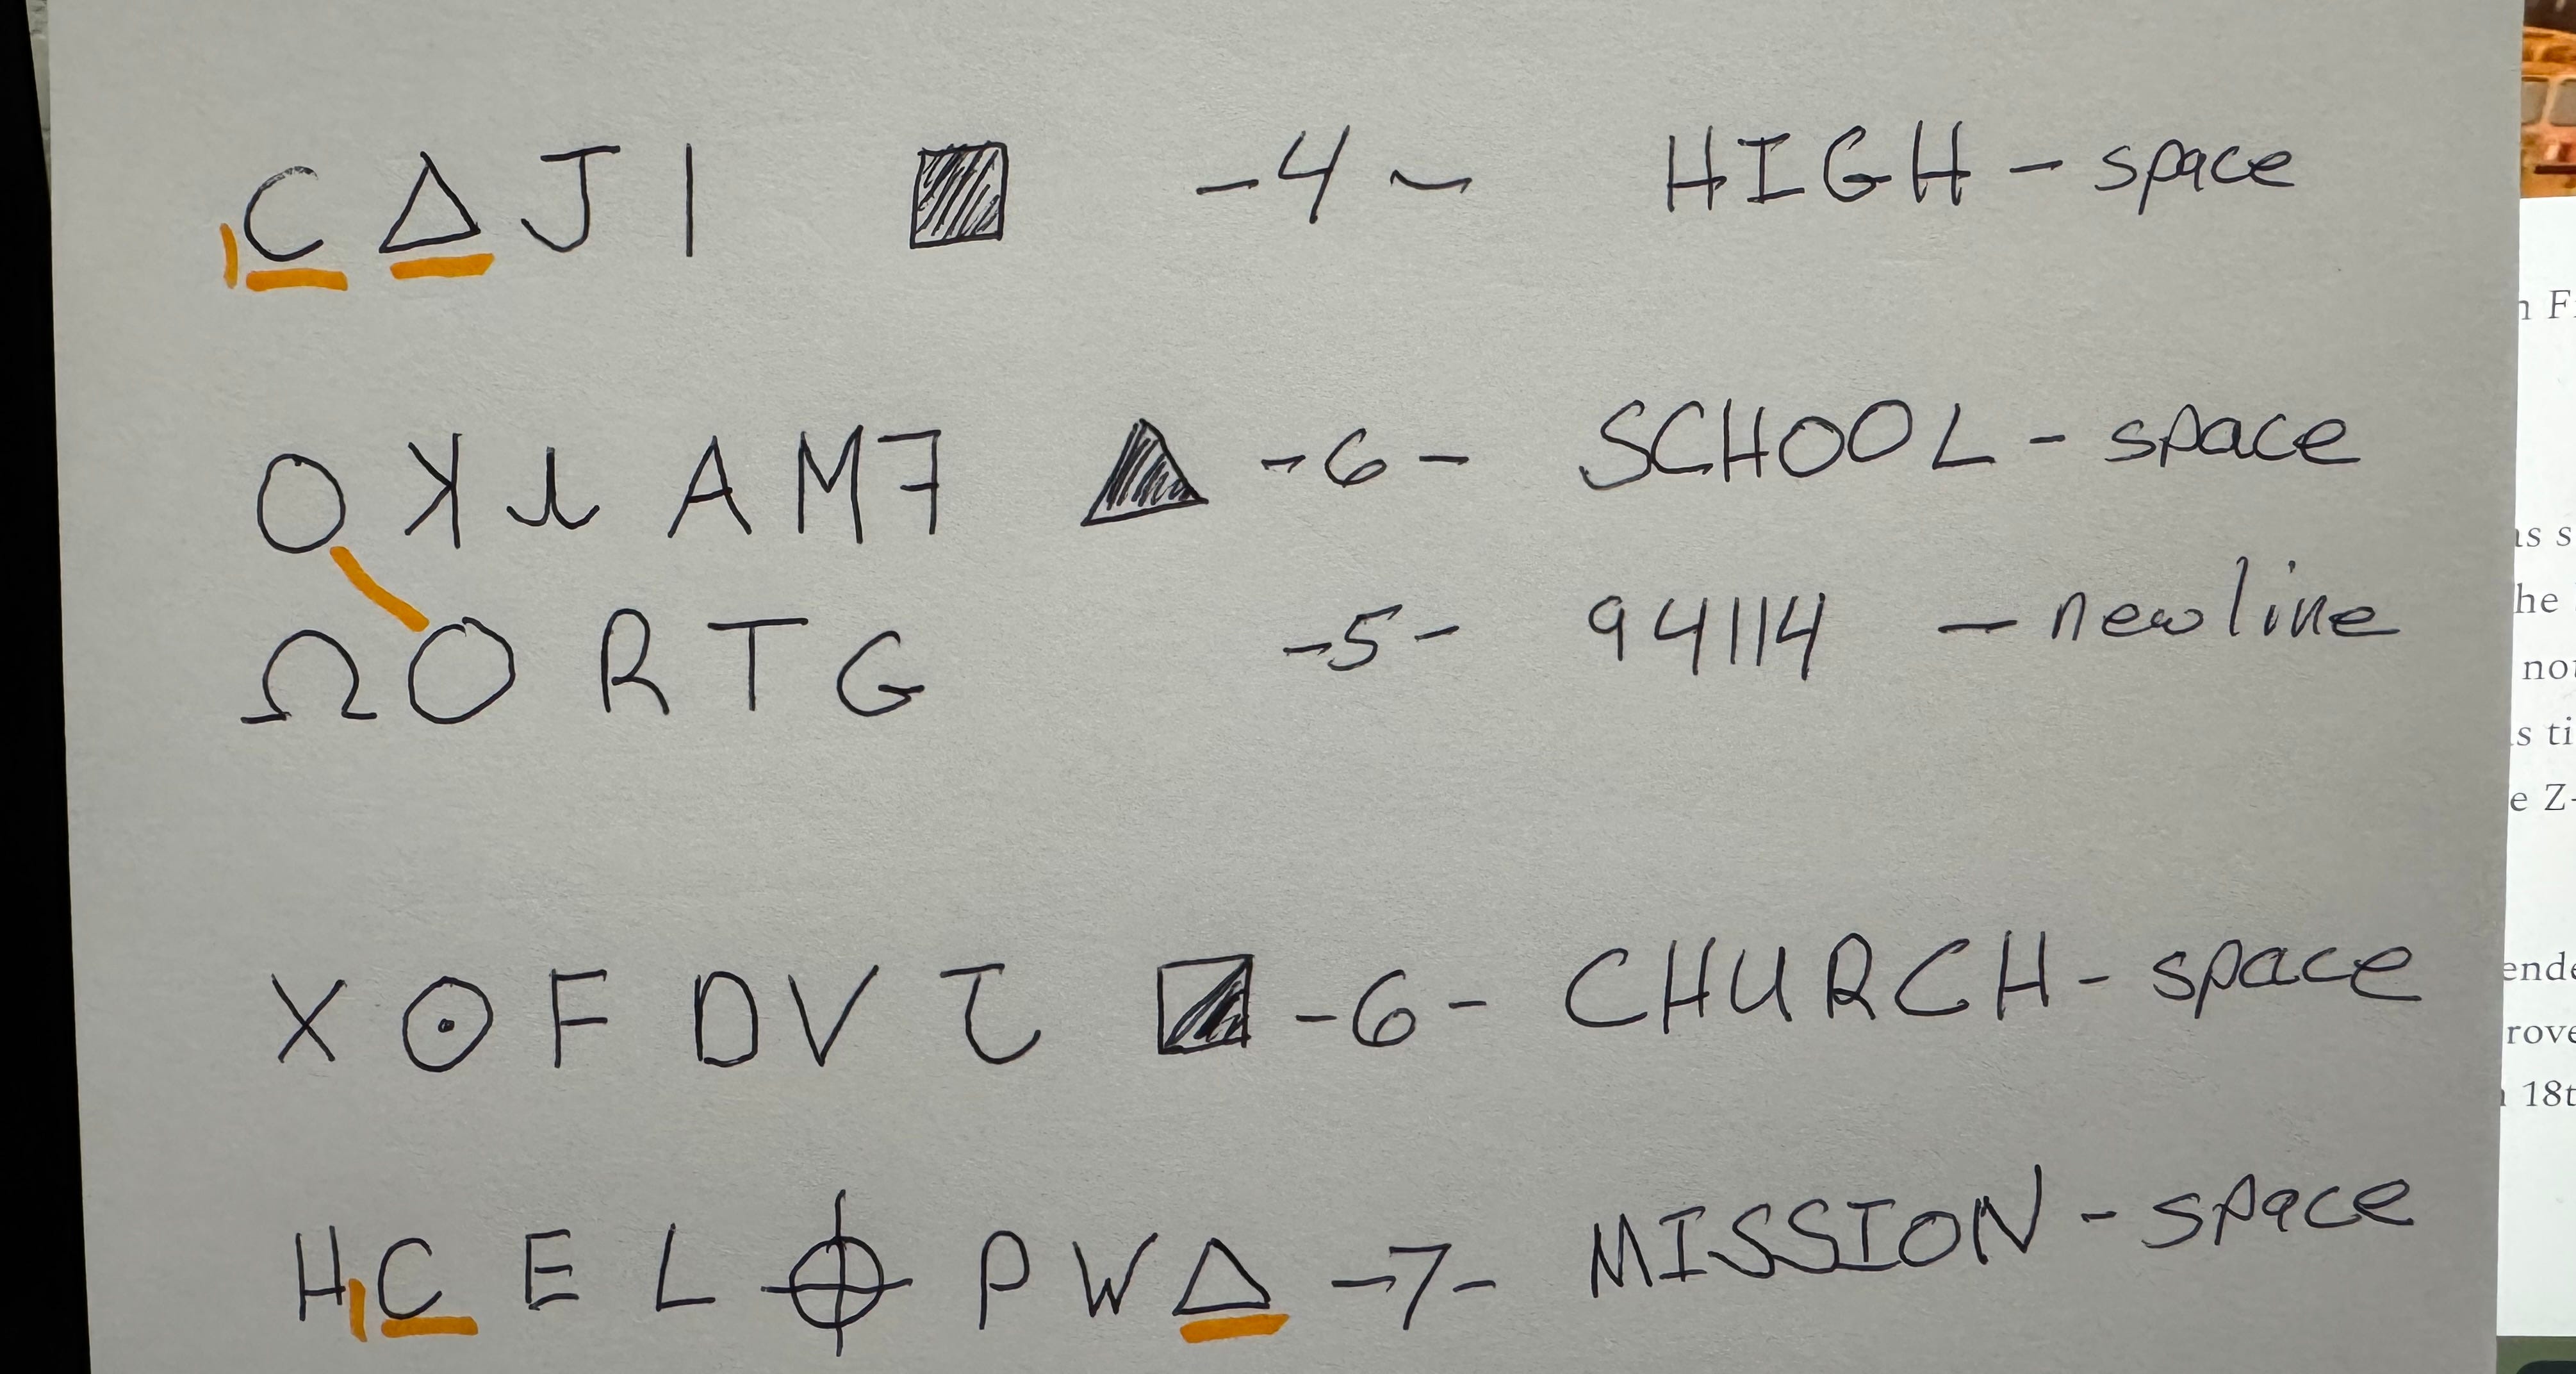 C Δ J I ■ -4- HIGH - space
O ꓘ A M ꟻ ▲ -6- SCHOOL - space
Ω O R T G -5- 94114 - newline
X ⊙ F D V Ⴀ -6- CHURCH - space
H C E L ⌖ P W Δ -7- MISSION - space
n F
as s
he
not
s ti
e Z-
ende
rove
18t